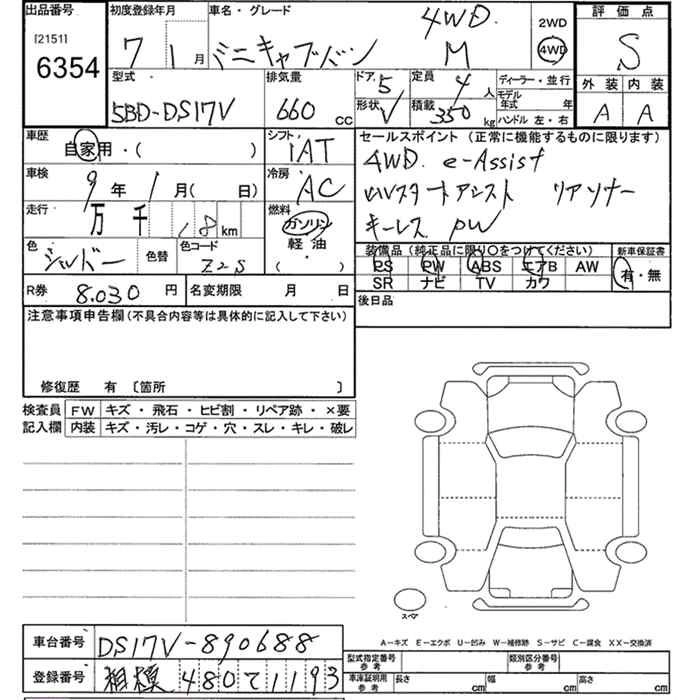 出品番号 [2151] 6354
初度登録年月 7 1月
車名・グレード 4WD ミニキャブバン M 2WD 4WD
評価点 S
外装 内装 A A
型式 5BD-DS17V
排気量 660 cc
ドア 5 形状 V
定員 4人 積載 350 kg
ディーラー・並行
モデル年式 年
ハンドル 左・右
車歴 自家用・( )
シフト IAT
車検 9年 1月( 日)
冷房 AC
走行 万 千 18 km
燃料 ガソリン 軽油 ( )
色 シルバー 色替 色コード Z2S
R券 8.030 円 名変期限 月 日
セールスポイント(正常に機能するものに限ります)
4WD. e-Assist
MVスタートアシスト リアソナー
キーレス PW
装備品(純正品に限り〇をつけてください) 新車保証書
PS PW ABS エアB AW 有・無
SR ナビ TV カワ
後日品
注意事項申告欄(不具合内容等は具体的に記入して下さい)
修復歴 有 〔箇所 〕
検査員 FW キズ・飛石・ヒビ割・リペア跡・×要
記入欄 内装 キズ・汚レ・コゲ・穴・スレ・キレ・破レ
スペア
A-キズ E-エクボ U-凹み W-補修跡 S-サビ C-腐食 XX-交換済
車台番号 DS17V-890688
型式指定番号 参考 類別区分番号 参考
登録番号 相模 480て1193
車庫証明用 参考 長さ cm 幅 cm 高さ cm